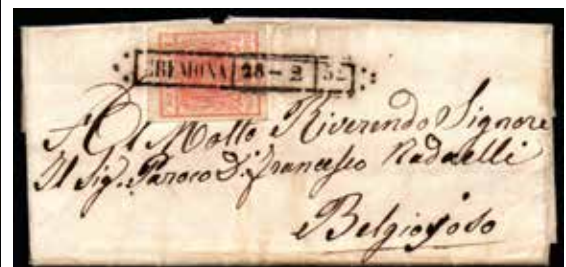 CREMONA 28 - 2
Al Molto Riverendo Signore
Il Sig. Paroco D. Francesco Radaelli
Belgioyoso